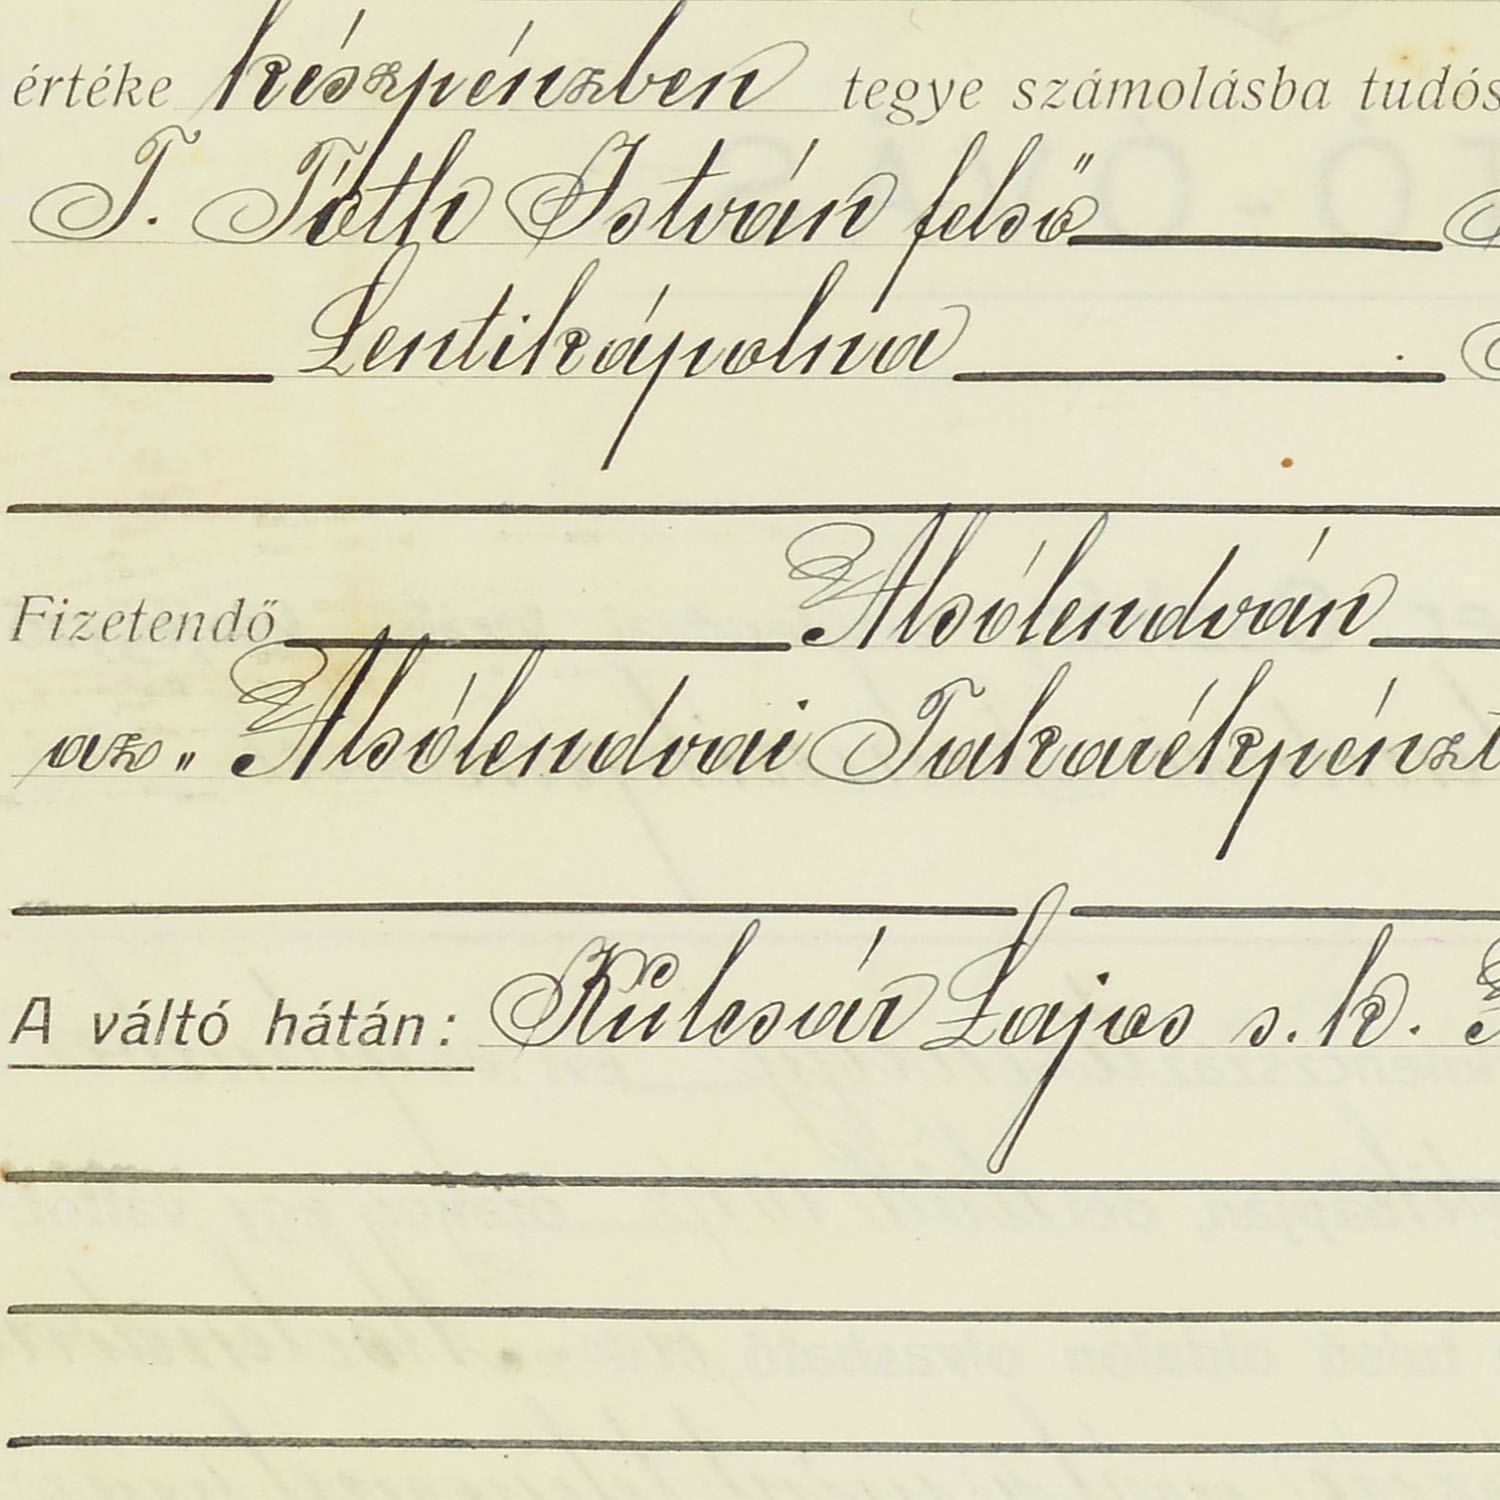 értéke készpénzben tegye számolásba tudós
T. Tóth István felső
Lentikápolna
Fizetendő Alsólendván
az „Alsólendvai Takarékpénzt
A váltó hátán: Kulcsár Lajos s. k.